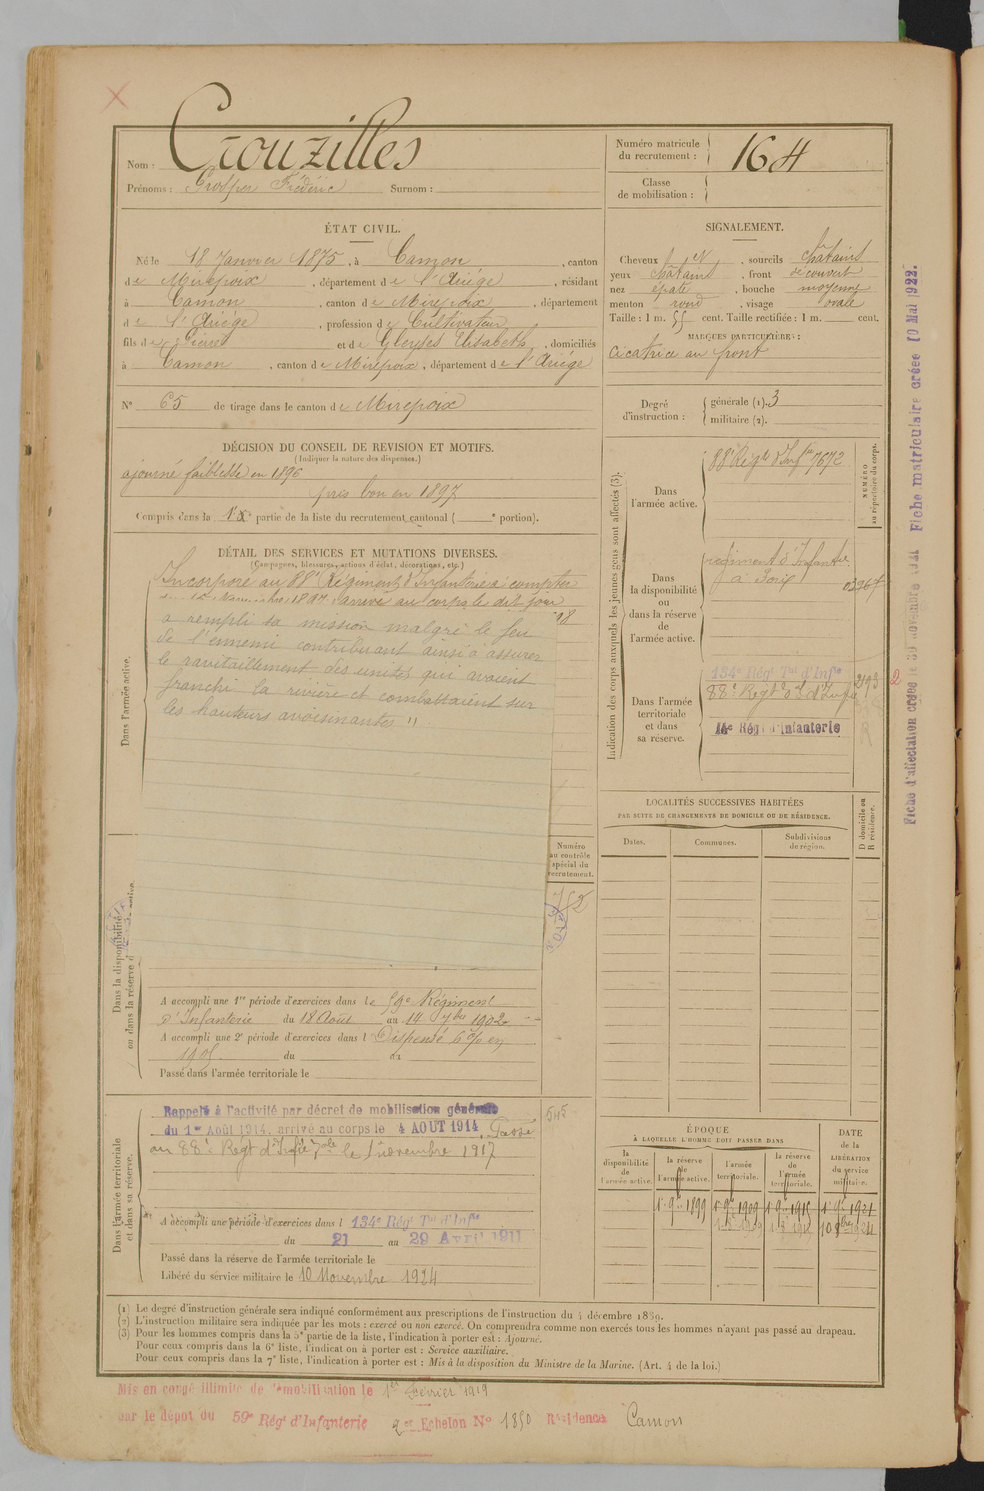 Nom : Crouzilles
Prénoms : Prosper Frédéric Surnom :
Numéro matricule du recrutement : 164
Classe de mobilisation :
ÉTAT CIVIL.
Né le 18 Janvier 1875, à Camon, canton
de Mirepoix, département de l'Ariège, résidant
à Camon, canton de Mirepoix, département
de l'Ariège, profession de Cultivateur
fils de Pierre et de Gleyses Elisabeth, domiciliés
à Camon, canton de Mirepoix, département de l'Ariège
N° 65 de tirage dans le canton de Mirepoix
SIGNALEMENT.
Cheveux, sourcils chatains
yeux chatains, front découvert
nez épaté, bouche moyenne
menton rond, visage ovale
Taille : 1 m. 55 cent. Taille rectifiée : 1 m. cent.
MARQUES PARTICULIÈRES :
Cicatrice au front
Degré d'instruction : générale (1). 3
militaire (2).
DÉCISION DU CONSEIL DE REVISION ET MOTIFS.
(Indiquer la nature des dispenses.)
ajourné faiblesse en 1896
pris bon en 1897
Compris dans la partie de la liste du recrutement cantonal ( e portion).
DÉTAIL DES SERVICES ET MUTATIONS DIVERSES.
(Campagnes, blessures, actions d'éclat, décorations, etc.)
Dans l'armée active.
Incorporé au 88e Régiment d'Infanterie à compter
1897, arrivé au corps le dit jour
98
a rempli sa mission malgré le feu
de l'ennemi contribuant ainsi à assurer
le ravitaillement des unités qui avaient
franchi la rivière et combattaient sur
les hauteurs avoisinantes "
Indication des corps auxquels les jeunes gens sont affectés (3).
NUMÉRO au répertoire du corps.
Dans l'armée active.
88e Régt d'Infie 7672
Dans la disponibilité ou dans la réserve de l'armée active.
régiment d'Infanterie
à Foix
Dans l'armée territoriale et dans sa réserve.
134e Régt Tal d'Infie
88e Régt d'Infie
14e Régt d'Infanterie
LOCALITÉS SUCCESSIVES HABITÉES
PAR SUITE DE CHANGEMENTS DE DOMICILE OU DE RÉSIDENCE.
D domicile ou R résidence.
Dates. Communes. Subdivisions de région.
Numéro au contrôle spécial du recrutement.
752
A accompli une 1re période d'exercices dans le 59e Régiment
d'Infanterie du 18 Août au 14 7bre 1902
A accompli une 2e période d'exercices dans l Dispensé
1905 du au
Passé dans l'armée territoriale le
Dans l'armée territoriale et dans sa réserve.
Rappelé à l'activité par décret de mobilisation générale
du 1er Août 1914, arrivé au corps le 4 AOUT 1914, Passé
au 88e Régt d'Infie le 1 novembre 1917
545
A accompli une période d'exercices dans l 134e Régt Tal d'Infie
du 21 au 29 Avril 1911
Passé dans la réserve de l'armée territoriale le
Libéré du service militaire le 10 Novembre 1924
ÉPOQUE
À LAQUELLE L'HOMME DOIT PASSER DANS
DATE de la LIBÉRATION du service militaire.
la disponibilité de l'armée active. la réserve de l'armée active. l'armée territoriale. la réserve de l'armée territoriale.
1899 1909 1915 1921
(1) Le degré d'instruction générale sera indiqué conformément aux prescriptions de l'instruction du 4 décembre 1889.
(2) L'instruction militaire sera indiquée par les mots : exercé ou non exercé. On comprendra comme non exercés tous les hommes n'ayant pas passé au drapeau.
(3) Pour les hommes compris dans la 5e partie de la liste, l'indication à porter est : Ajourné.
Pour ceux compris dans la 6e liste, l'indication à porter est : Service auxiliaire.
Pour ceux compris dans la 7e liste, l'indication à porter est : Mis à la disposition du Ministre de la Marine. (Art. 4 de la loi.)
Mis en congé illimité de démobilisation le 1er Février 1919
par le dépot du 59e Régt d'Infanterie 2me Echelon N° 1850 Résidence Camon
Fiche d'affectation créée le 30 novembre
Fiche matriculaire créée 10 Mai 1922.